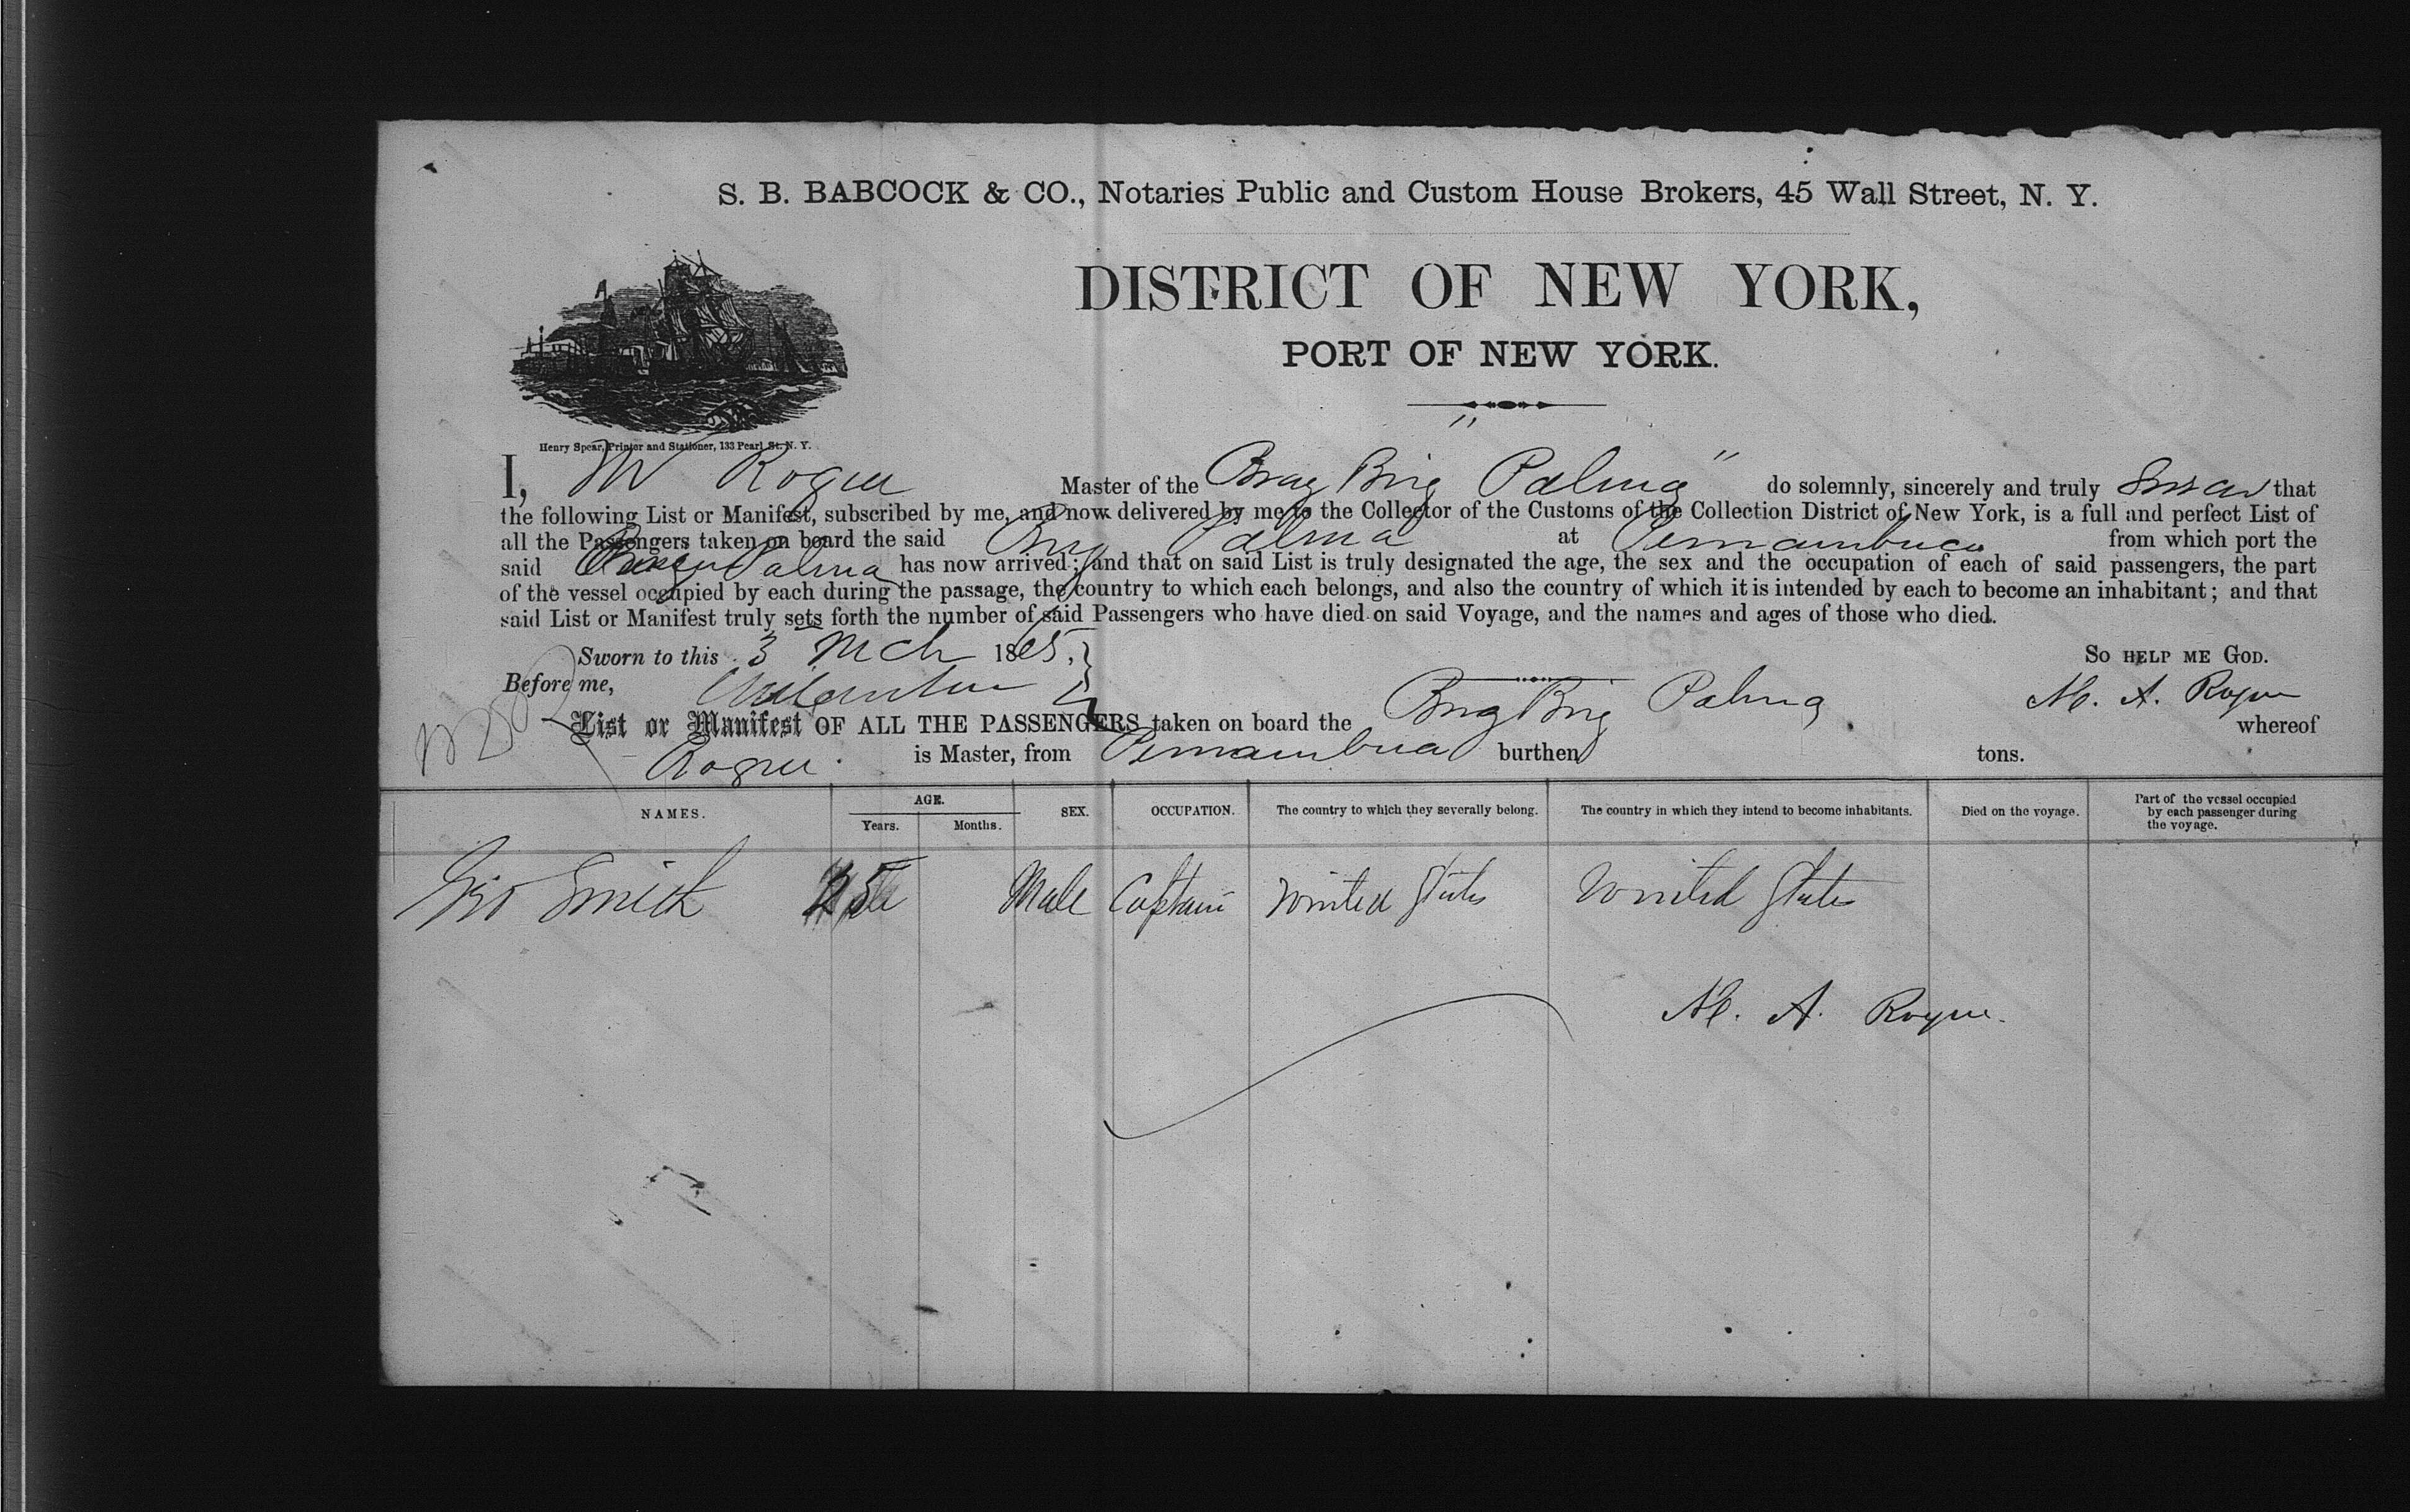 S. B. BABCOCK & CO., Notaries Public and Custom House Brokers, 45 Wall Street, N. Y.
DISTRICT OF NEW YORK,
PORT OF NEW YORK.
Henry Spear, Printer and Stationer, 133 Pearl St. N. Y.
I, M Rogue Master of the Brig "Palma" do solemnly, sincerely and truly Swear that
the following List or Manifest, subscribed by me, and now delivered by me to the Collector of the Customs of the Collection District of New York, is a full and perfect List of
all the Passengers taken on board the said Brig Palma at Pernambuco from which port the
said Palma has now arrived; and that on said List is truly designated the age, the sex and the occupation of each of said passengers, the part
of the vessel occupied by each during the passage, the country to which each belongs, and also the country of which it is intended by each to become an inhabitant; and that
said List or Manifest truly sets forth the number of said Passengers who have died on said Voyage, and the names and ages of those who died.
Sworn to this 3 Mch 1865. SO HELP ME GOD.
Before me, M. A. Rogue
List or Manifest OF ALL THE PASSENGERS taken on board the Brig Palma whereof
Rogue is Master, from Pernambuco burthen tons.
NAMES. AGE. Years. Months. SEX. OCCUPATION. The country to which they severally belong. The country in which they intend to become inhabitants. Died on the voyage. Part of the vessel occupied by each passenger during the voyage.
Geo Smith 25 Male Captain United States United States
M. A. Rogue.